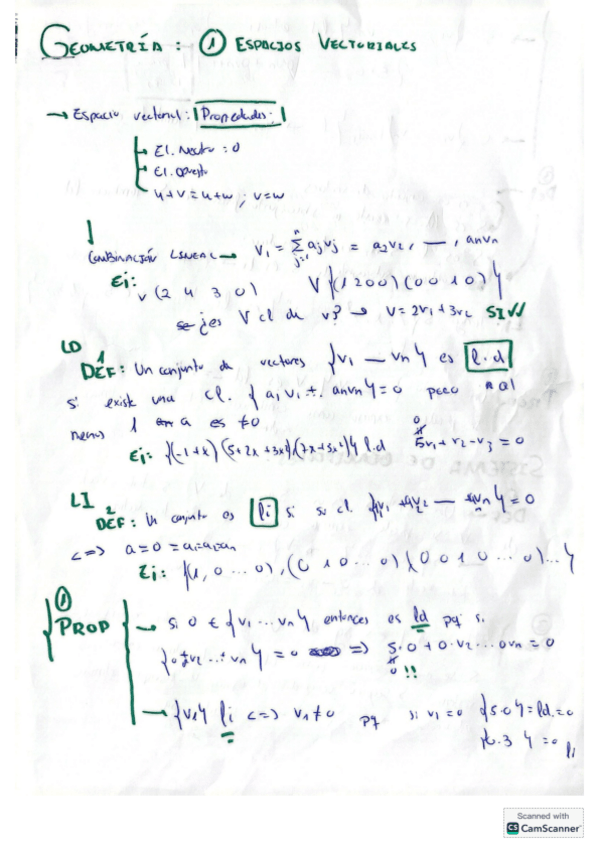 GEOMETRÍA: ① ESPACIOS VECTORIALES
→ Espacio vectorial: |Propiedades:|
El. Neutro: 0
El. opuesto
u+v=u+w ; v=w
COMBINACIÓN LINEAL → v₁ = Σ aⱼvⱼ = a₂v₂, —, anvn
Ej:
v (2 4 3 0) V {(1 2 0 0) (0 0 1 0)}
¿es V cl de v? → v=2v₁+3v₂ SI√√
LD 1
DEF: Un conjunto de vectores {v₁ — vn} es l.d
si existe una cl. {a₁v₁ + anvn}=0 pero al
menos 1 a es ≠0
Ej: {(-1+x)(5+2x+3x²)(7x+3x²)} l.d 5v₁+v₂-v₃=0
LI 2
DEF: Un conjunto es li si su cl. =0
<=> a=0
Ej: {(1,0...0),(0 1 0...0)(0 0 1 0...0)...}
① PROP
→ si 0 ∈ {v₁...vn} entonces es ld pq si
=0 => 5·0+0·v₂...0vn=0
0!!
→ {v₁} li <=> v₁≠0 pq si v₁=0 {5·0}=ld=0
=0 li
Scanned with
CS CamScanner